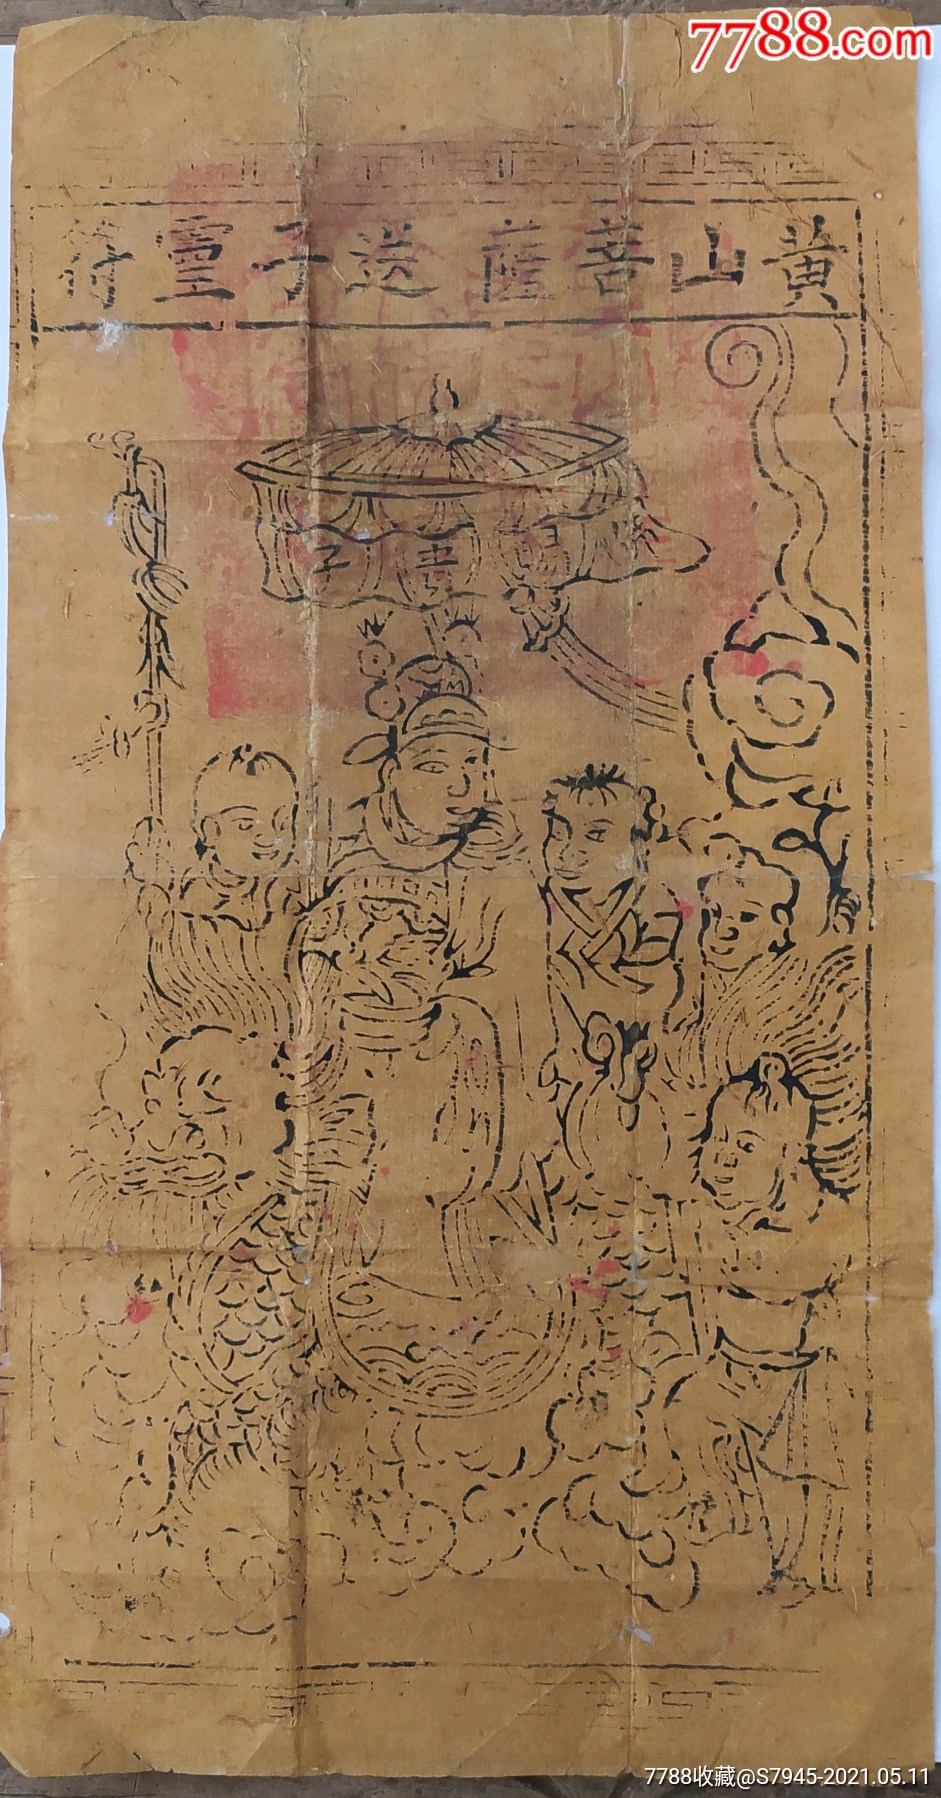 7788.com
黃山菩薩送子靈
五子
7788收藏@S7945-2021.05.11